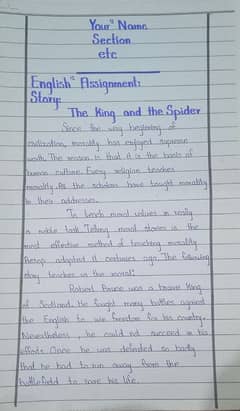 Your" Name
Section
etc
English" Assignment:
Story:
The King and the Spider
Since the very beginning of
civilization, morality has enjoyed supreme
worth. The reason is that it is the basis of
human culture. Every religion teaches
morality. All the scholars have taught morality
in their addresses.
To teach moral values is really
a noble task. Telling moral stories is the
most effective method of teaching morality
Aesop adopted it centuries ago. The following
story teaches us the moral:
Robert Bruce was a brave King
of Scotland. He fought many battles against
the English to win freedom for his country.
Nevertheless, he could not succeed in his
efforts. Once he was defeated so badly
that he had to run away from the
battlefield to save his life.